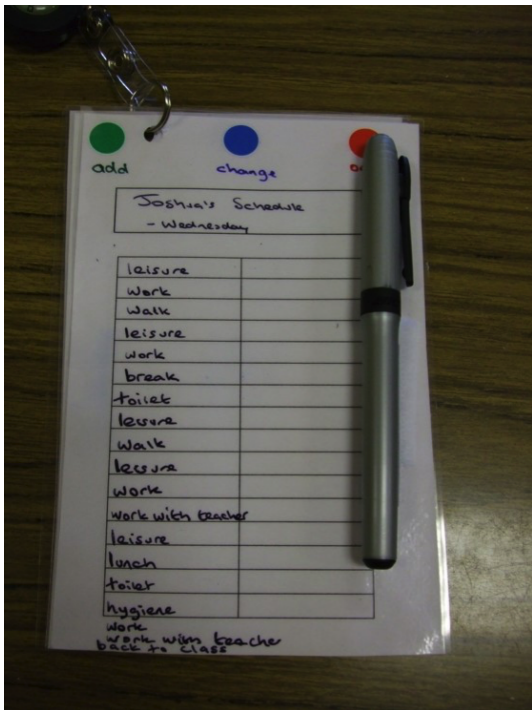 add change
Joshua's Schedule
- Wednesday
leisure
work
walk
leisure
work
break
toilet
leisure
walk
leisure
work
work with teacher
leisure
lunch
toilet
hygiene
work
work with teacher
back to class